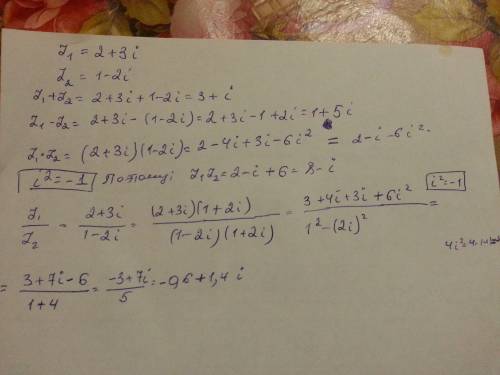 Z₁ = 2+3i
Z₂ = 1-2i
Z₁+Z₂ = 2+3i+1-2i = 3+i
Z₁-Z₂ = 2+3i-(1-2i) = 2+3i-1+2i = 1+5i
Z₁·Z₂ = (2+3i)(1-2i) = 2-4i+3i-6i² = 2-i-6i².
i² = -1 Z₁Z₂ = 2-i+6 = 8-i
i² = -1
Z₁/Z₂ = (2+3i)/(1-2i) = (2+3i)(1+2i)/(1-2i)(1+2i) = (3+4i+3i+6i²)/(1²-(2i)²) =
= (3+7i-6)/(1+4) = (-3+7i)/5 = -0,6+1,4i